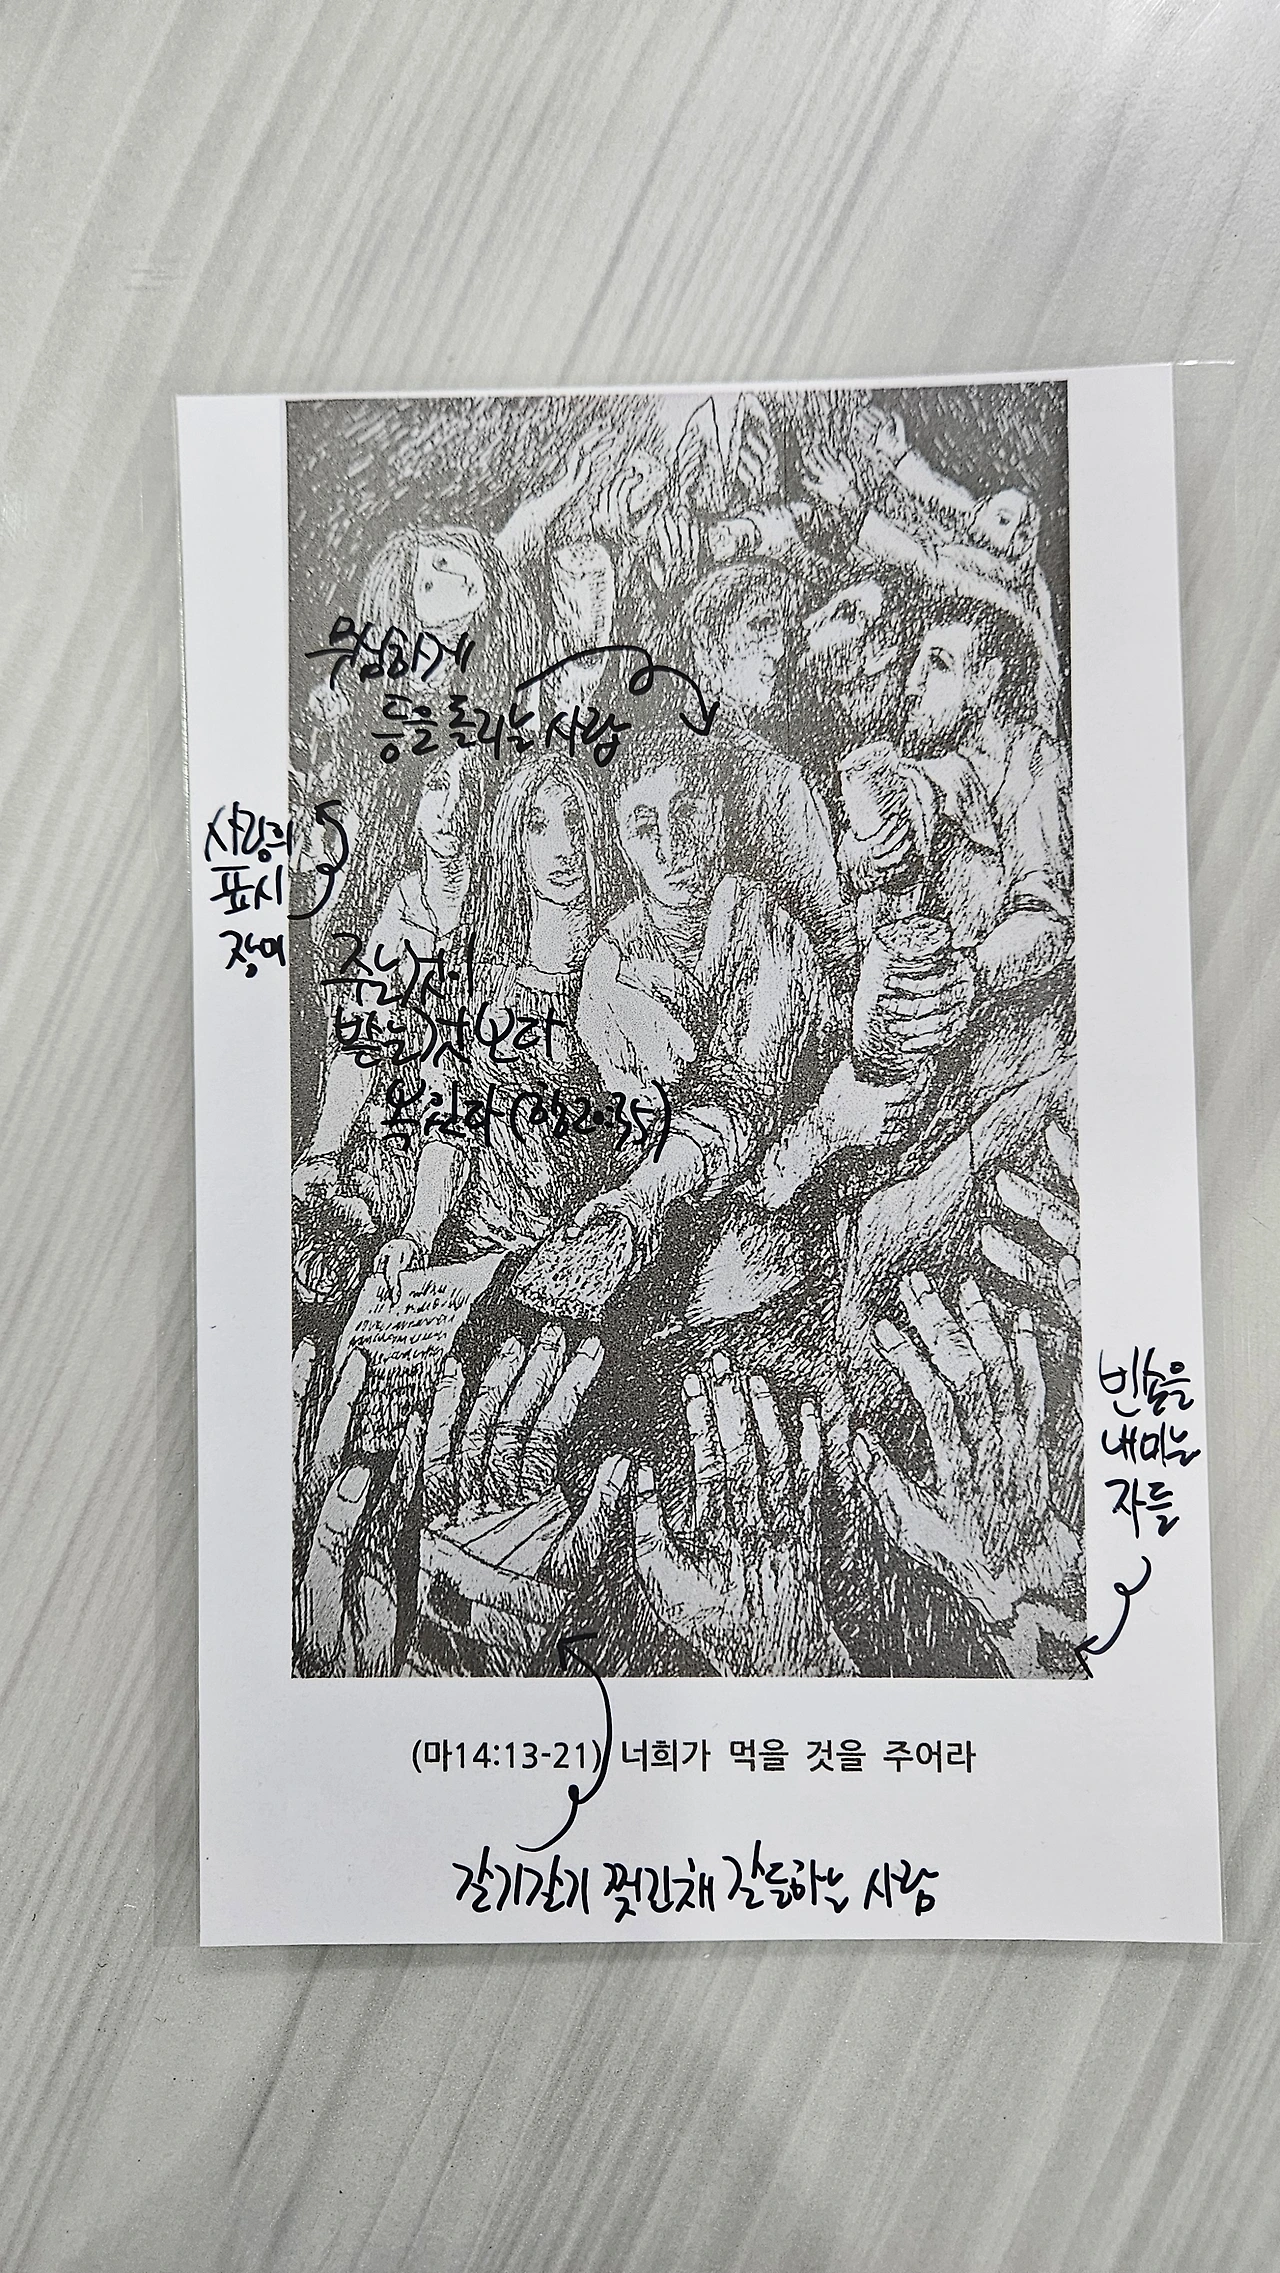 무심하게
등을 돌리는 사람
사랑의
표시
장미
주는 것이
받는 것 보다
복 있다 (행20:35)
빈손을
내미는
자들
(마14:13-21) 너희가 먹을 것을 주어라
갈기갈기 찢긴채 갈등하는 사람